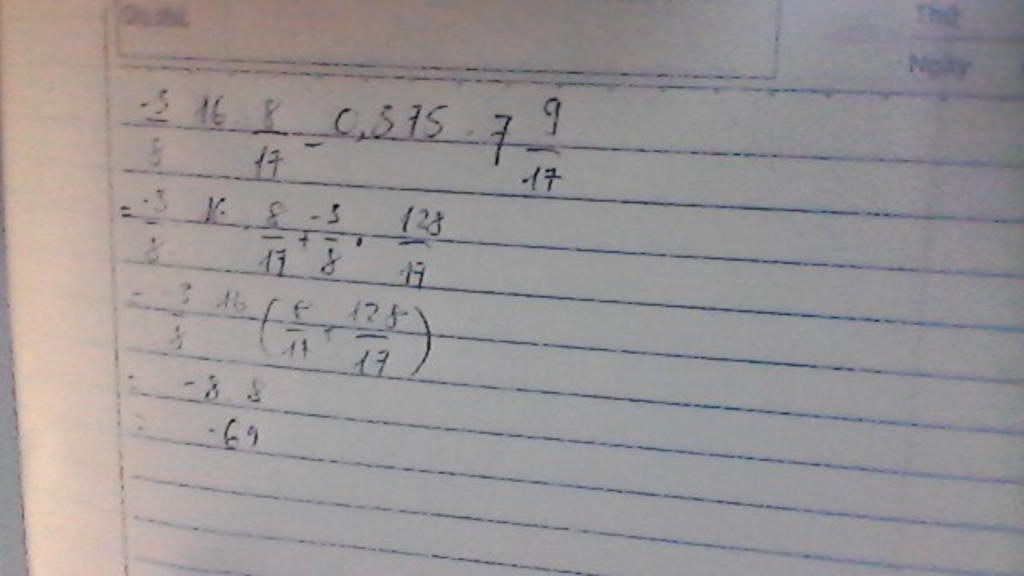 Thứ
Ngày
-3/8 16 8/17 - 0,375 . 7 9/17
= -3/8 16 8/17 + -3/8 . 128/17
= -3/8 16 (8/17 + 128/17)
= -8 . 8
= -69